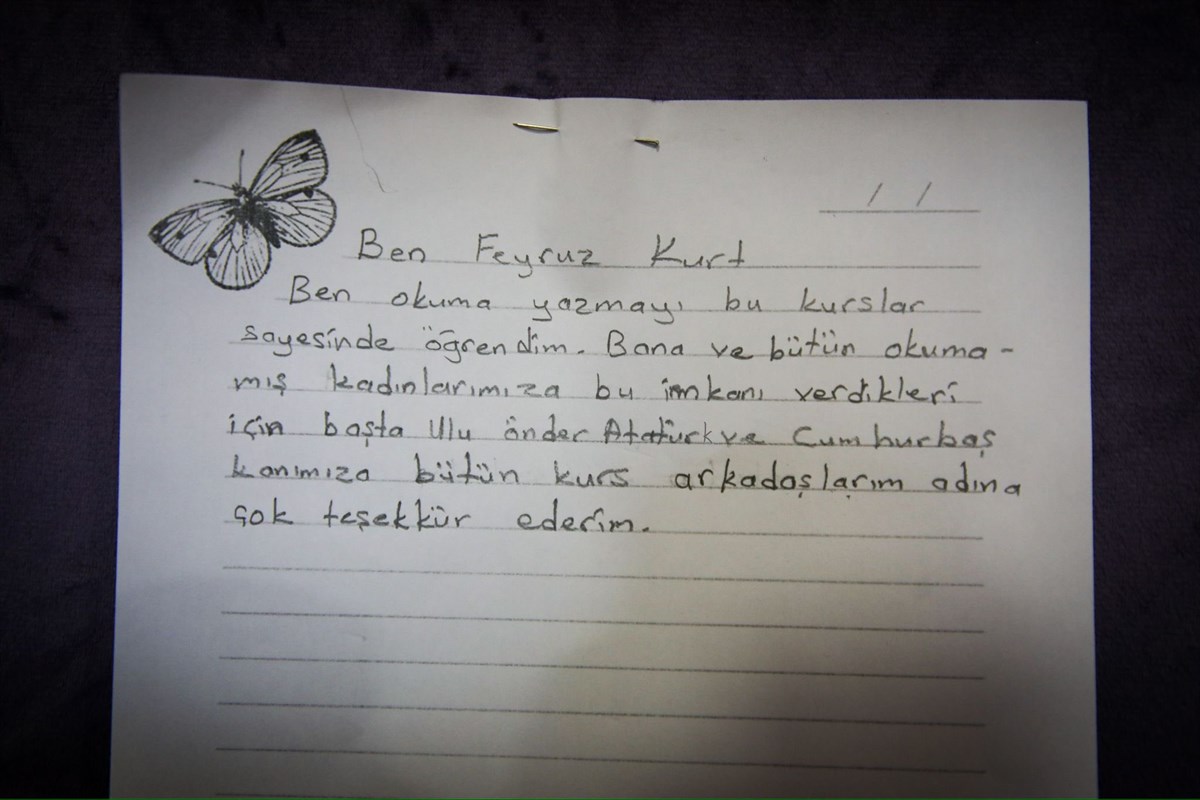 / /
Ben Feyruz Kurt
Ben okuma yazmayı bu kurslar
sayesinde öğrendim. Bana ve bütün okuma-
mış kadınlarımıza bu imkanı verdikleri
için başta Ulu önder Atatürk ve Cumhurbaş
kanımıza bütün kurs arkadaşlarım adına
çok teşekkür ederim.